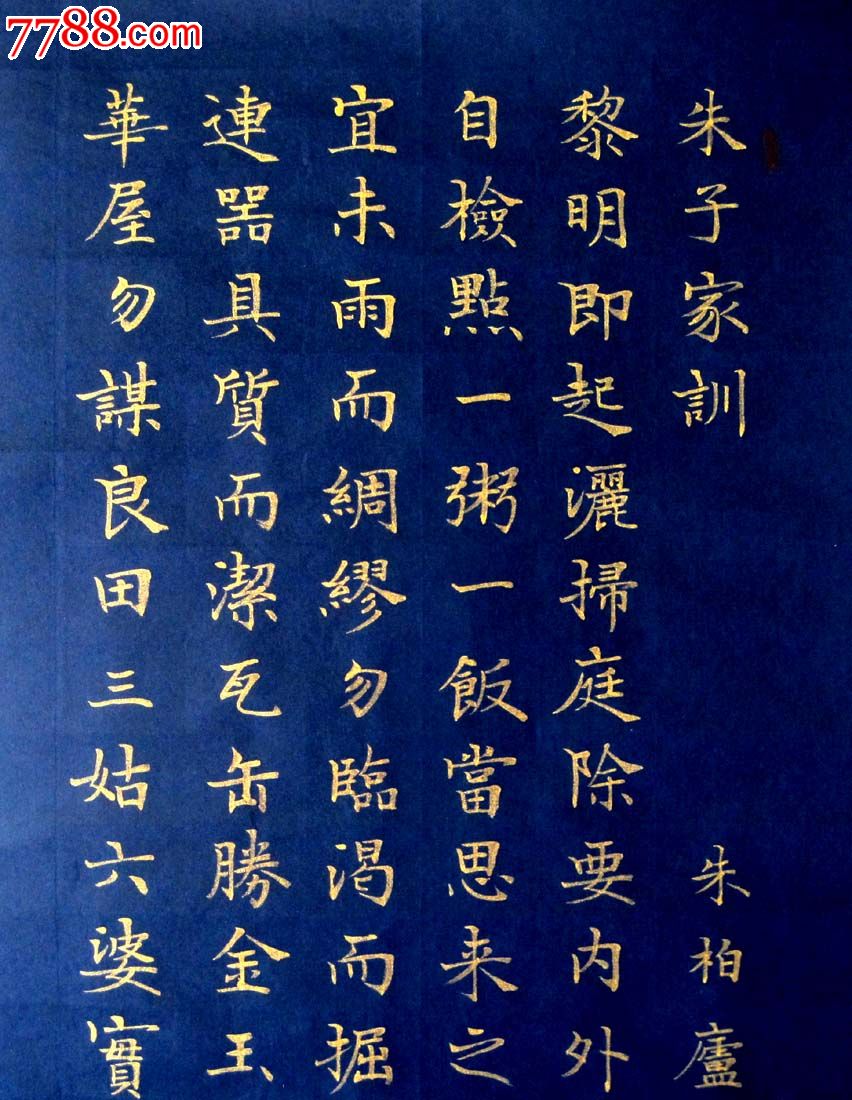 7788.com
朱子家訓 朱柏廬
黎明即起灑掃庭除要内外
自檢點一粥一飯當思来之
宜未雨而綢繆勿臨渴而掘
連器具質而潔瓦缶勝金玉
華屋勿謀良田三姑六婆實